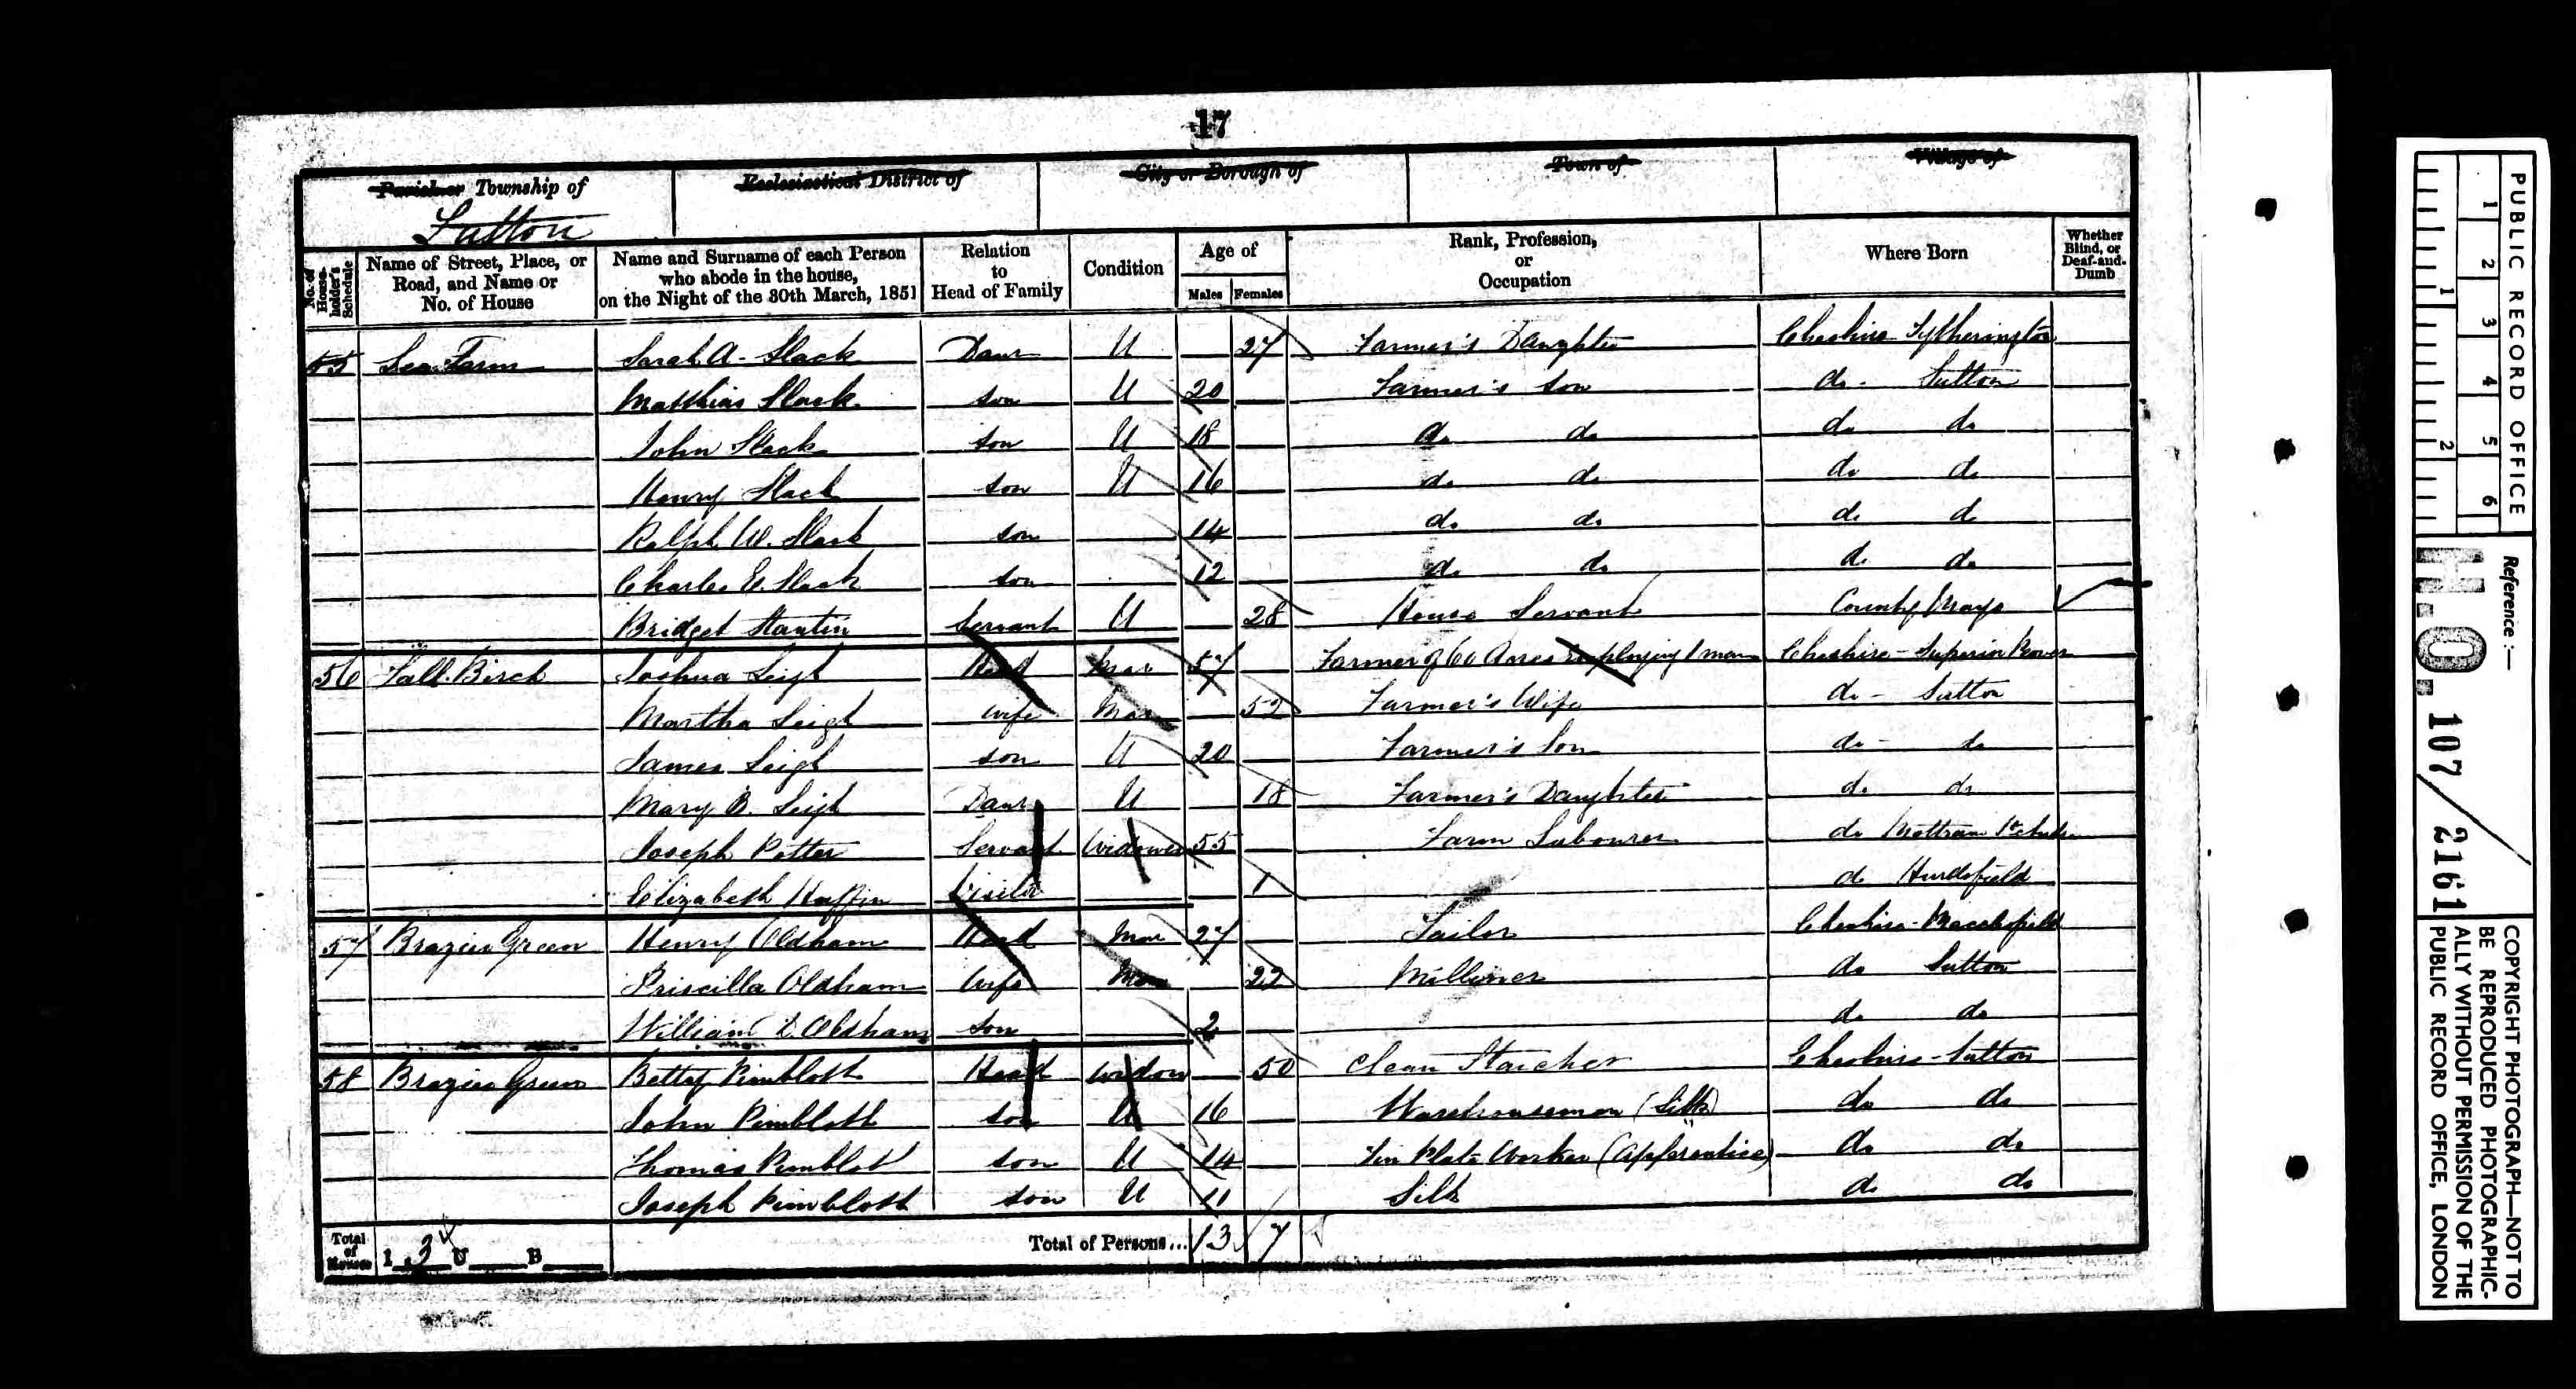 17
Parish or Township of
Ecclesiastical District of
City or Borough of
Town of
Village of
Sutton
No. of House-holder's Schedule
Name of Street, Place, or Road, and Name or No. of House
Name and Surname of each Person who abode in the house, on the Night of the 30th March, 1851
Relation to Head of Family
Condition
Age of
Males
Females
Rank, Profession, or Occupation
Where Born
Whether Blind, or Deaf-and-Dumb
55 Lea Farm Sarah A. Slack Daur U 27 Farmer's Daughter Cheshire Tytherington
Matthias Slack son U 20 Farmer's son do - Sutton
John Slack son U 18 do do do do
Henry Slack son U 16 do do do do
Ralph W. Slack son 14 do do do do
Charles E. Slack son 12 do do do do
Bridget Stantin Servant U 28 House Servant County Mayo
56 Fall Birch Joshua Leigh Head Mar 57 Farmer of 60 Acres Employing 1 man Cheshire -
Martha Leigh wife Mar 52 Farmer's Wife do - Sutton
James Leigh son U 20 Farmer's Son do - do
Mary B. Leigh Daur U 18 Farmer's Daughter do do
Joseph Potter Servant Widower 55 Farm Labourer do Mottram
Elizabeth Visitor 1 do Hurdsfield
57 Brazier Green Henry Oldham Head Mar 27 Tailor Cheshire - Macclesfield
Priscilla Oldham Wife Mar 22 Milliner do Sutton
William Oldham son 2 do do
58 Brazier Green Betty Pimblott Head Widow 50 Clear Starcher Cheshire - Sutton
John Pimblott son U 16 Warehouseman (Silk) do do
Thomas Pimblott son U 14 Tin Plate Worker (Apprentice) do do
Joseph Pimblott son U 11 Silk do do
Total of Houses I 3 U B
Total of Persons... 13 7
PUBLIC RECORD OFFICE
1 2 3 4 5 6
1 2
Reference :-
H.O. 107/2161
COPYRIGHT PHOTOGRAPH—NOT TO
BE REPRODUCED PHOTOGRAPHIC-
ALLY WITHOUT PERMISSION OF THE
PUBLIC RECORD OFFICE, LONDON